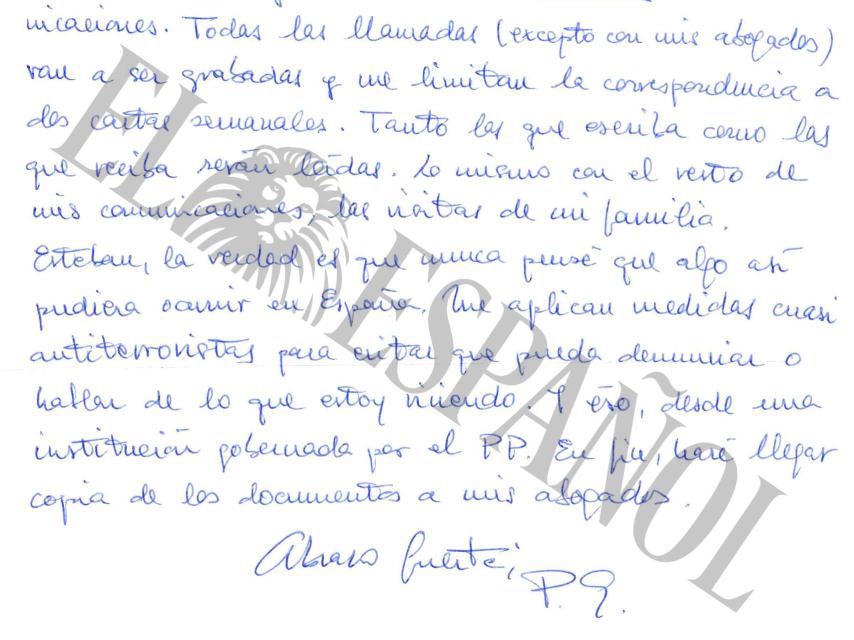 nicaciones. Todas las llamadas (excepto con mis abogados)
van a ser grabadas y me limitan la correspondencia a
dos cartas semanales. Tanto las que escriba como las
que reciba serán leídas. Lo mismo con el resto de
mis comunicaciones, las visitas de mi familia.
Esteban, la verdad es que nunca pensé que algo así
pudiera ocurrir en España. Me aplican medidas cuasi
antiterroristas para evitar que pueda denunciar o
hablar de lo que estoy viviendo. Y eso, desde una
institución gobernada por el PP. En fin, haré llegar
copia de los documentos a mis abogados.
Abrazo fuerte,
P.
EL ESPAÑOL